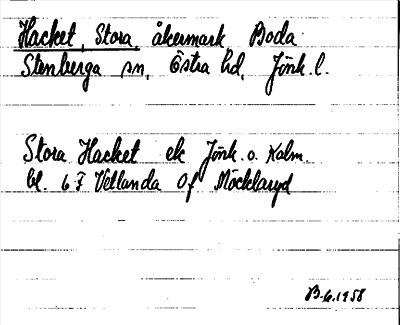 Hacket, Stora, åkermark Boda
Stenberga sn, Östra hd, Jönk. l.
Stora Hacket ek Jönk. o. Kalm.
bl. 6 F Vetlanda Of Möcklaryd
B-G.1958